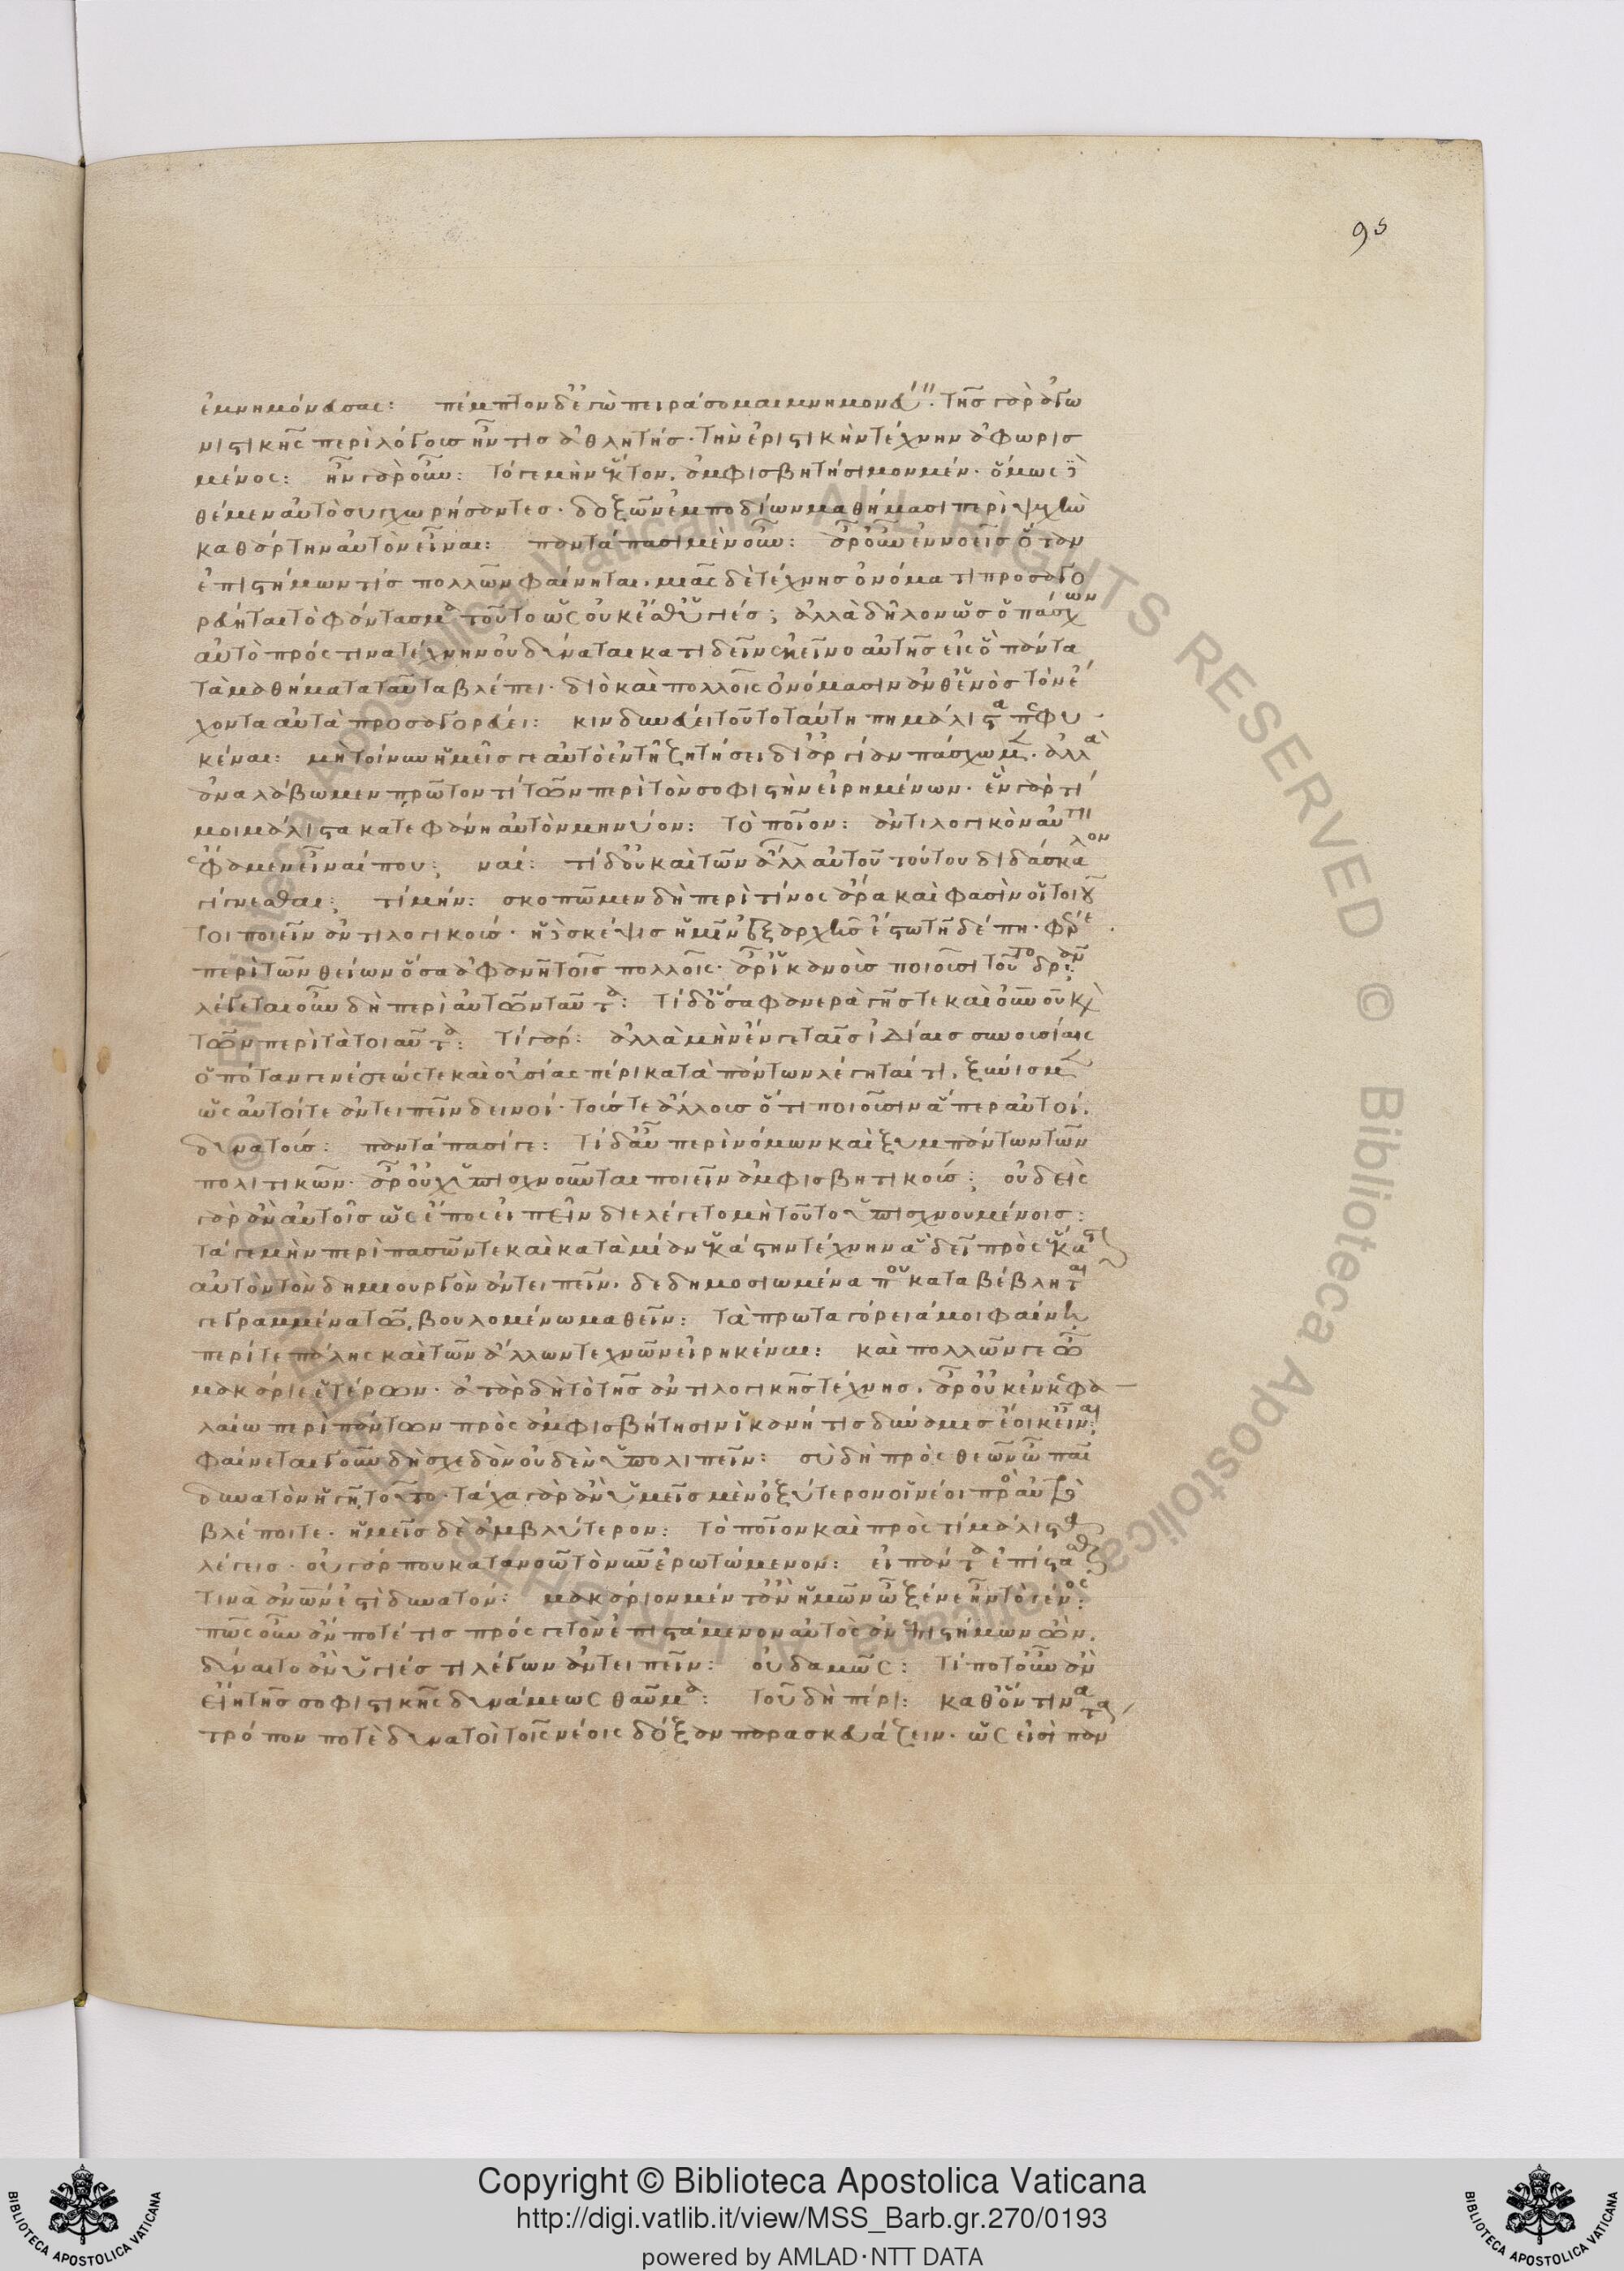 95
ἐμνημόνευσας: πέμπτον δ' ἐγὼ πειράσομαι μνημονεύειν. τῆς γὰρ ἀγω
νιστικῆς περὶ λόγους ἦν τις ἀθλητής· τὴν ἐριστικὴν τέχνην ἀφωρισ
μένος: ἦν γὰρ οὖν: τό γε μὴν ἕκτον, ἀμφισβητήσιμον μέν· ὅμως δ' ἐ
θέμεν αὐτῷ συγχωρήσαντες· δοξῶν ἐμποδίων μαθήμασι περὶ ψυχὴν
καθαρτὴν αὐτὸν εἶναι: παντάπασι μὲν οὖν: ἆρ' οὖν ἐννοεῖς ὅταν
ἐπιστήμων τίς πολλῶν φαίνηται, μιᾶς δὲ τέχνης ὀνόματι προσαγο
ρεύηται τὸ φάντασμα τοῦτο ὡς οὐκ ἔσθ' ὑγιές; ἀλλὰ δῆλον ὡς ὁ πάσχων
αὐτὸ πρός τινα τέχνην οὐ δύναται κατιδεῖν ἐκεῖνο αὐτῆς εἰς ὃ πάντα
τὰ μαθήματα ταῦτα βλέπει· διὸ καὶ πολλοῖς ὀνόμασιν ἀνθ' ἑνὸς τὸν ἔ
χοντα αὐτὰ προσαγορεύει: κινδυνεύει τοῦτο ταύτῃ πῃ μάλιστα πεφυ
κέναι: μὴ τοίνυν ἡμεῖς γε αὐτὸ ἐν τῇ ζητήσει δι' ἀργίαν πάσχωμεν· ἀλλὰ
ἀναλάβωμεν πρῶτον τί τῶν περὶ τὸν σοφιστὴν εἰρημένων· ἓν γάρ τί
μοι μάλιστα κατεφάνη αὐτὸν μηνύον: τὸ ποῖον: ἀντιλογικὸν αὐτὸν
ἔφαμεν εἶναί που: ναί: τί δ' οὐ καὶ τῶν ἄλλων αὐτοῦ τούτου διδάσκαλον
γίγνεσθαι; τί μήν: σκοπῶμεν δὴ περὶ τίνος ἄρα καὶ φασὶν οἱ τοιοῦ
τοι ποιεῖν ἀντιλογικούς· ἡ δὲ σκέψις ἡμῖν ἐξ ἀρχῆς ἔστω τῇδέ πῃ· φέρε
περὶ τῶν θείων ὅσα ἀφανῆ τοῖς πολλοῖς· ἆρ' ἱκανοὺς ποιοῦσι τοῦτο δρᾶν:
λέγεται οὖν δὴ περὶ αὐτῶν ταῦτα: τί δ' ὅσα φανερὰ γῆς τε καὶ οὐρανοῦ καὶ
τῶν περὶ τὰ τοιαῦτα: τί γάρ: ἀλλὰ μὴν ἔν γε ταῖς ἰδίαις συνουσίαις
ὁπόταν γενέσεώς τε καὶ οὐσίας πέρι κατὰ πάντων λέγηταί τι, ξύνισμεν
ὡς αὐτοί τε ἀντειπεῖν δεινοί· τούς τε ἄλλους ὅτι ποιοῦσιν ἅπερ αὐτοί,
δυνατούς: παντάπασί γε: τί δ' αὖ περὶ νόμων καὶ ξυμπάντων τῶν
πολιτικῶν· ἆρ' οὐχ ὑπισχνοῦνται ποιεῖν ἀμφισβητικούς; οὐδεὶς
γὰρ ἂν αὐτοῖς ὡς ἔπος εἰπεῖν διελέγετο μὴ τοῦτο ὑπισχνουμένοις:
τά γε μὴν περὶ πασῶν τε καὶ κατὰ μίαν ἑκάστην τέχνην ἃ δεῖ πρὸς ἕκαστον
αὐτὸν τὸν δημιουργὸν ἀντειπεῖν, δεδημοσιωμένα που καταβέβληται
γεγραμμένα τῷ βουλομένῳ μαθεῖν: τὰ πρωταγόρειά μοι φαίνῃ
περί τε πάλης καὶ τῶν ἄλλων τεχνῶν εἰρηκέναι: καὶ πολλῶν γε ὦ
μακάριε ἑτέρων· ἀτὰρ δὴ τὸ τῆς ἀντιλογικῆς τέχνης, ἆρ' οὐκ ἐν κεφα
λαίῳ περὶ πάντων πρὸς ἀμφισβήτησιν ἱκανή τις δύναμις ἔοικ' εἶναι:
φαίνεται γοῦν δὴ σχεδὸν οὐδὲν ὑπολιπεῖν: σὺ δὴ πρὸς θεῶν ὦ παῖ
δυνατὸν ἡγῇ τοῦτο· τάχα γὰρ ἂν ὑμεῖς μὲν ὀξύτερον οἱ νέοι πρὸς αὐτὸ
βλέποιτε· ἡμεῖς δὲ ἀμβλύτερον: τὸ ποῖον καὶ πρὸς τί μάλιστα
λέγεις· οὐ γάρ που κατανοῶ τὸ νῦν ἐρωτώμενον: εἰ πάντα ἐπίστασθαι
τινὰ ἀνθρώπων ἐστὶ δυνατόν: μακάριον μέν τ' ἂν ἡμῶν ὦ ξένε ἦν τὸ γένος:
πῶς οὖν ἄν ποτέ τις πρός γε τὸν ἐπιστάμενον αὐτὸς ἀνεπιστήμων ὤν,
δύναιτο ἂν ὑγιές τι λέγων ἀντειπεῖν: οὐδαμῶς: τί ποτ' οὖν ἂν
εἴη τῆς σοφιστικῆς δυνάμεως θαῦμα: τοῦ δὴ πέρι: καθ' ὅντινα
τρόπον ποτὲ δυνατοὶ τοῖς νέοις δόξαν παρασκευάζειν· ὡς εἰσὶ πάντα
Copyright © Biblioteca Apostolica Vaticana
http://digi.vatlib.it/view/MSS_Barb.gr.270/0193
powered by AMLAD·NTT DATA
BIBLIOTECA APOSTOLICA VATICANA
BIBLIOTECA APOSTOLICA VATICANA